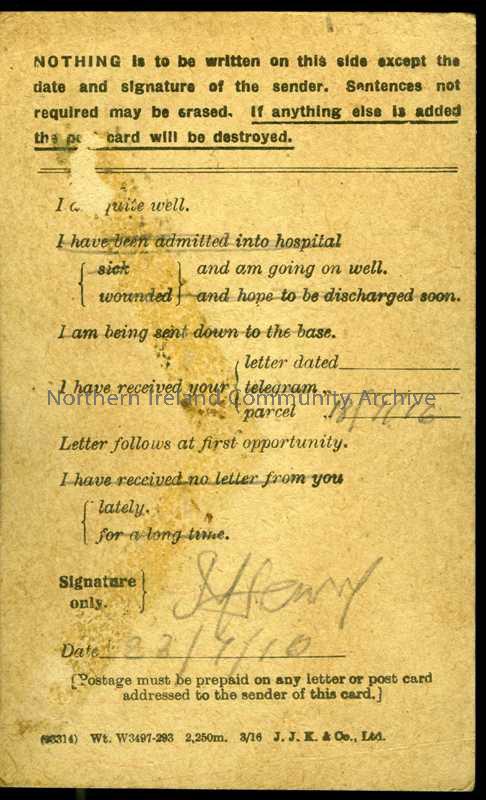 NOTHING is to be written on this side except the
date and signature of the sender. Sentences not
required may be erased. If anything else is added
the po card will be destroyed.
I a quite well.
I have been admitted into hospital
sick and am going on well.
wounded and hope to be discharged soon.
I am being sent down to the base.
letter dated
I have received your telegram „
parcel „ 18/7/16
Northern Ireland Community Archive
Letter follows at first opportunity.
I have received no letter from you
lately.
for a long time.
Signature
only. Henry
Date 22/7/16
[Postage must be prepaid on any letter or post card
addressed to the sender of this card.]
(93314) Wt. W3497-293 2,250m. 3/16 J. J. K. & Co., Ltd.